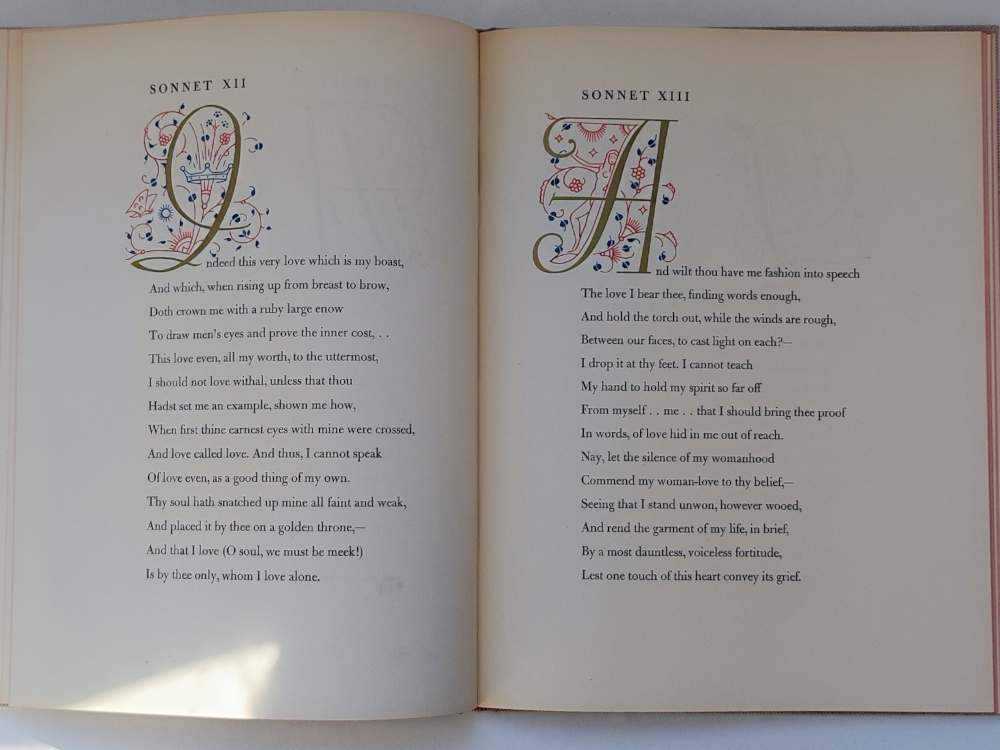 SONNET XII
Indeed this very love which is my boast,
And which, when rising up from breast to brow,
Doth crown me with a ruby large enow
To draw men's eyes and prove the inner cost, . .
This love even, all my worth, to the uttermost,
I should not love withal, unless that thou
Hadst set me an example, shown me how,
When first thine earnest eyes with mine were crossed,
And love called love. And thus, I cannot speak
Of love even, as a good thing of my own.
Thy soul hath snatched up mine all faint and weak,
And placed it by thee on a golden throne,—
And that I love (O soul, we must be meek!)
Is by thee only, whom I love alone.
SONNET XIII
And wilt thou have me fashion into speech
The love I bear thee, finding words enough,
And hold the torch out, while the winds are rough,
Between our faces, to cast light on each?—
I drop it at thy feet. I cannot teach
My hand to hold my spirit so far off
From myself . . me . . that I should bring thee proof
In words, of love hid in me out of reach.
Nay, let the silence of my womanhood
Commend my woman-love to thy belief,—
Seeing that I stand unwon, however wooed,
And rend the garment of my life, in brief,
By a most dauntless, voiceless fortitude,
Lest one touch of this heart convey its grief.